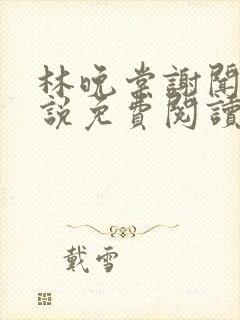 林晚棠謝聞
說免費閱讀
戴雪